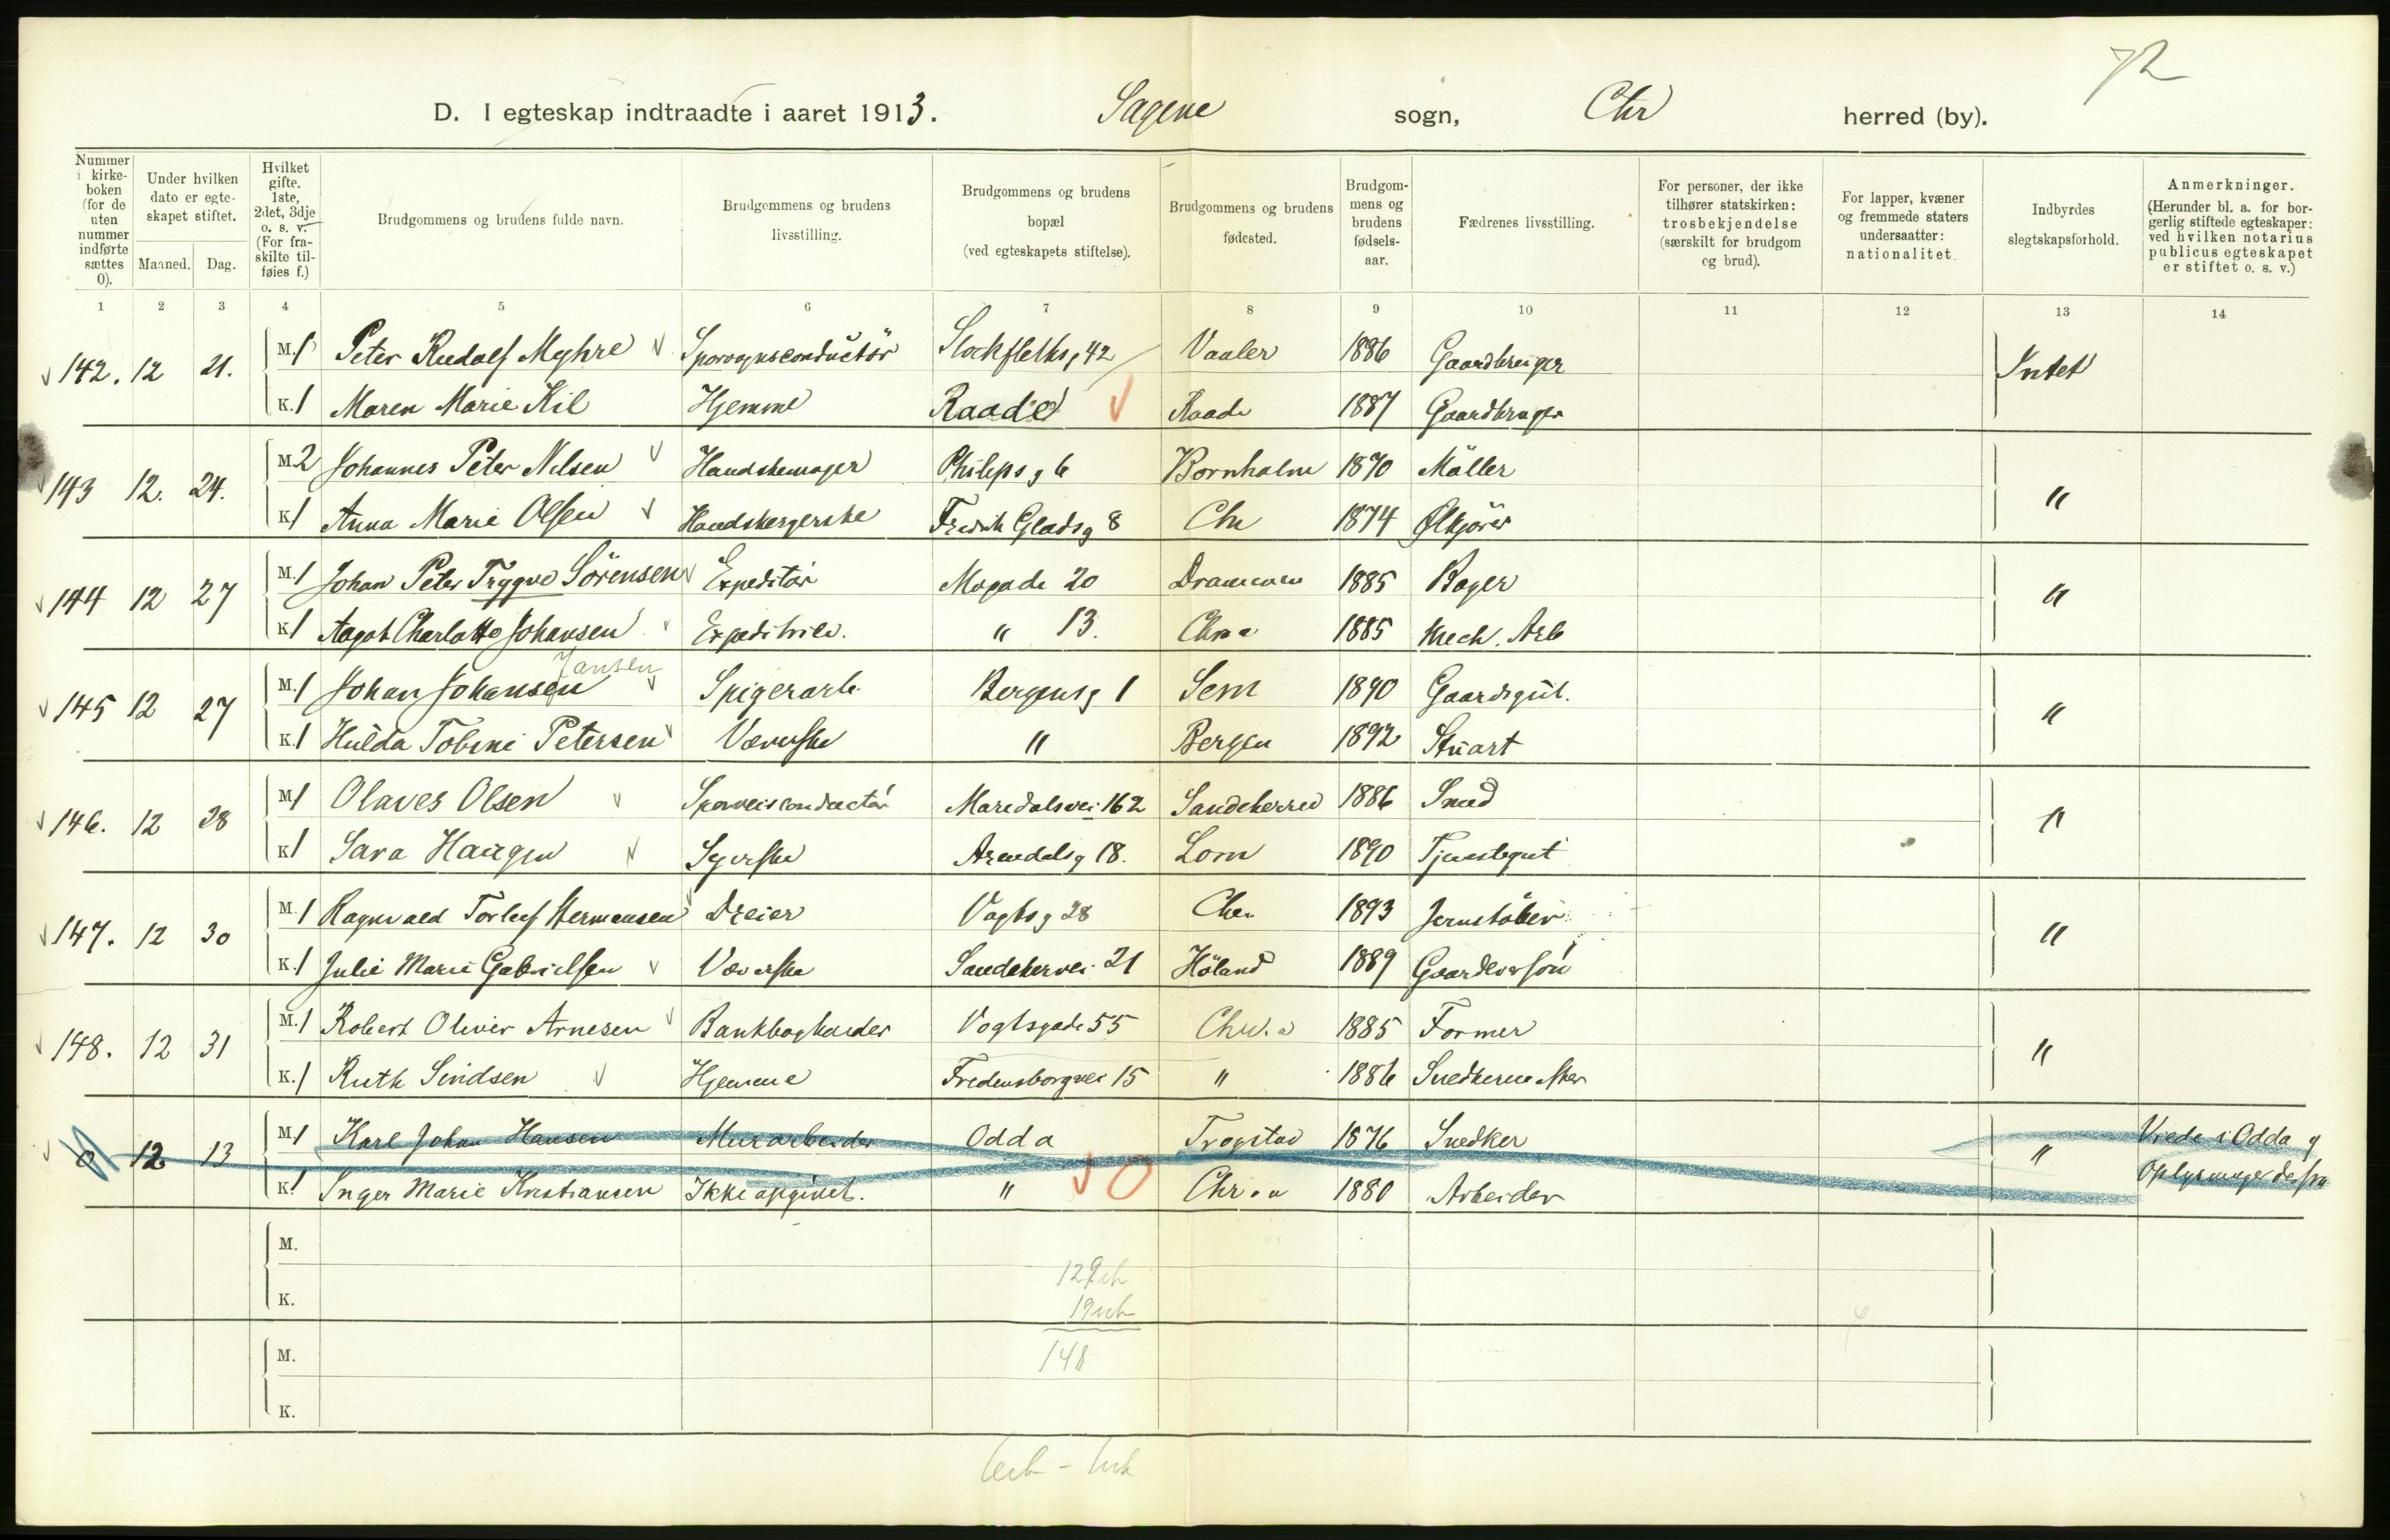 72
D. I egteskap indtraadte i aaret 1913. Sagene sogn, Chr herred (by).
Nummer i kirkeboken (for de uten nummer indførte sættes 0).
Under hvilken dato er egteskapet stiftet.
Maaned. Dag.
Hvilket gifte. 1ste, 2det, 3dje o. s. v. (For fraskilte tilføies f.)
Brudgommens og brudens fulde navn.
Brudgommens og brudens livsstilling.
Brudgommens og brudens bopæl (ved egteskapets stiftelse).
Brudgommens og brudens fødested.
Brudgommens og brudens fødselsaar.
Fædrenes livsstilling.
For personer, der ikke tilhører statskirken: trosbekjendelse (særskilt for brudgom og brud).
For lapper, kvæner og fremmede staters undersaatter: nationalitet.
Indbyrdes slegtskapsforhold.
Anmerkninger. (Herunder bl. a. for borgerlig stiftede egteskaper: ved hvilken notarius publicus egteskapet er stiftet o. s. v.)
1 2 3 4 5 6 7 8 9 10 11 12 13 14
142. 12 21. M. 1 Peter Rudolf Myhre Sporvognsconductör Stockflethsg 42 Vaaler 1886 Gaardbruger Intet
K. 1 Maren Marie Kil Hjemme Raade Raade 1887 Gaardbruger
143 12. 24. M. 2 Johannes Peter Nilsen Handskemager Philipsg 6 Bornholm 1870 Möller "
K. 1 Anna Marie Olsen Handskesyerske Fredrik Gladsg 8 Chr 1874 Ølkjörer
144 12 27 M. 1 Johan Peter Trygve Sörensen Expeditör Mogade 20 Drammen 1885 Bager "
K. 1 Aagot Charlotte Johansen Expeditrice. " 13. Chra 1885 Mech. Arb
Jansen
145 12 27 M. 1 Johan Johansen Spigerarb. Bergensg 1 Sem 1890 Gaardsgut. "
K. 1 Hulda Tobine Petersen Væverske " Bergen 1892 Stuart
146. 12 28 M. 1 Olaves Olsen Sporveisconductör Maridalsvei 162 Sandeherred 1886 Smed "
K. 1 Sara Haugen Syerske Arendalsg 18. Lom 1890 Tjenestegut
147. 12 30 M. 1 Ragnvald Torleif Hermansen Dreier Vogtsg 28 Chr. 1893 Jernstöber "
K. 1 Julie Marie Gabrielsen Væverske Sandakervei 21 Höland 1889
148. 12 31 M. 1 Robert Oliver Arnesen Bankbogholder Vogtsgade 55 Chr.a 1885 Former "
K. 1 Ruth Sindsen Hjemme Fredensborgvei 15 " 1886 Snedkermester
0 12 13 M. 1 Karl Johan Hansen Murarbeider Odda Trogstad 1876 Snedker " Viede i Odda og
K. 1 Inger Marie Kristiansen Ikke opgivet. " 0 Chr.a 1880 Arbeider Oplysninger derfra
M.
K.
M.
K.
148